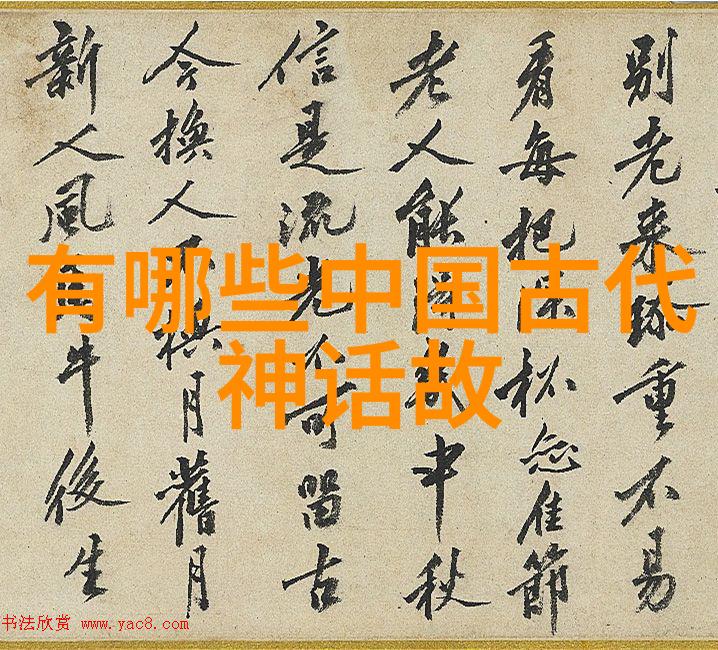 别老来珎重不易
看每把佳節
老人能中秋
信是流光不可留古
今換人不換月舊月
新人風牛後生
有哪些中国古代
神话故
书法欣赏 www.yac8.com